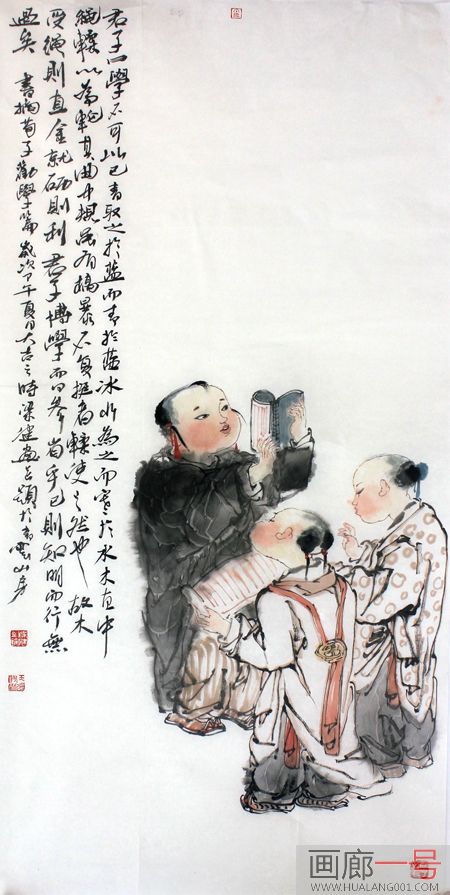 君子曰學不可以已青取之於藍而青於藍冰水為之而寒於水木直中
繩輮以為輪其曲中規雖有槁暴不复挺者輮使之然也故木
受繩則直金就砺則利君子博學而日参省乎己則知明而行無
過矣 書摘荀子勸學篇歲次午夏日大吉之時梁健畫題於山房
画廊一号
WWW.HUALANG001.COM